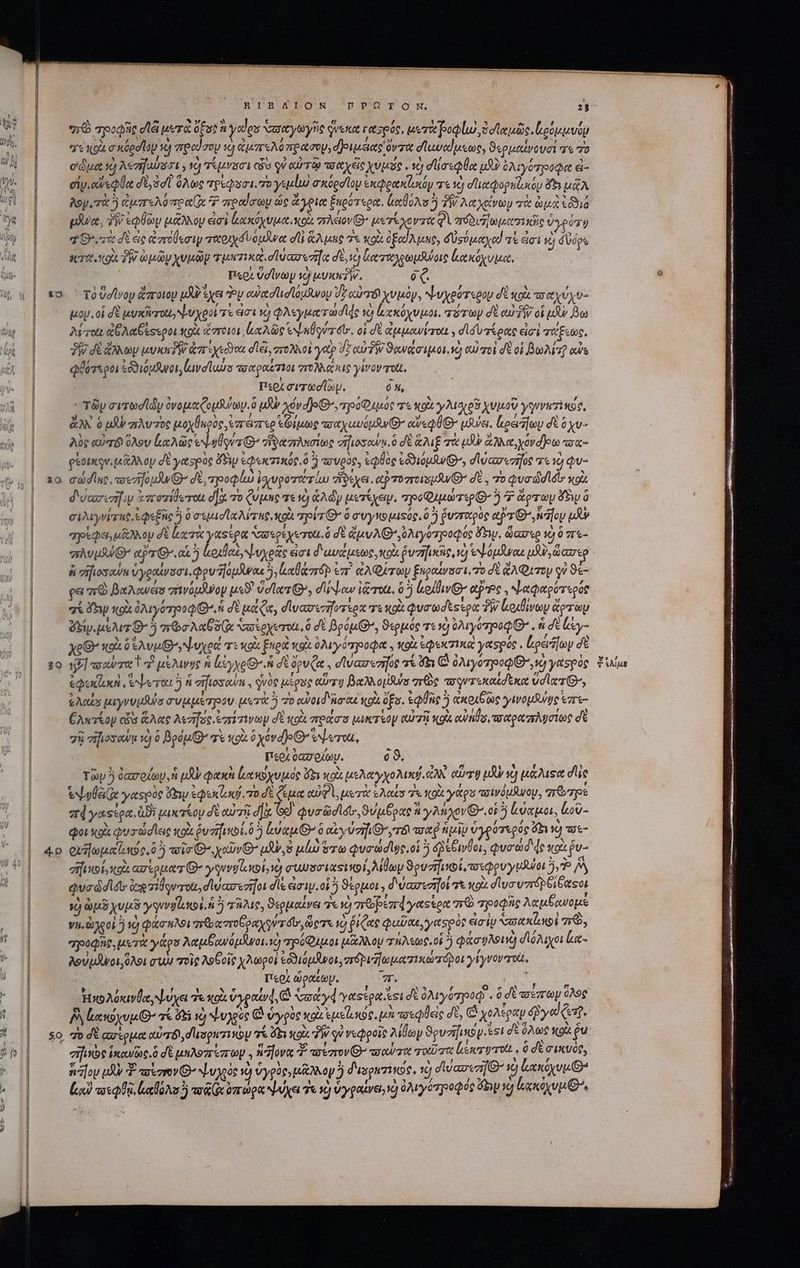 ΒΙΒΛΙΟΝ ΠΡΩΤΟΝ. 23
πρὸ τροφῆς διὰ μετὰ ὄξους ἢ γάρου ὑπαγωγῆς ἕνεκα γαστρός, μετὰ τροφὴν οὐδαμῶς. κρόμμυον
τε καὶ σκόρδιον καὶ πράσον καὶ ἀμπελόπρασον, δριμείας ὄντα δυνάμεως, θερμαίνουσί τε τὸ
σῶμα καὶ λεπτύνουσι, καὶ τέμνουσι τοὺς ἐν αὐτῷ παχεῖς χυμούς. καὶ δὶς ἑφθα μὲν ὀλιγότροφα εἰ-
σίν, ἄνεφθα δὲ, οὐδ' ὅλως τρέφουσι. τὸ γεμὴν σκόρδιον ἐκφρακτικόν τε καὶ διαφορητικόν ἐστι μᾶλ
λον. τὰ δὲ ἀμπελόπρασα τοῦ πράσου ὡς ἄγρια ξηρότερα. καθόλου δὲ τῶν λαχάνων τὰ ὠμὰ ἐσθιό
μενα, τῶν ἑφθῶν μᾶλλον εἰσὶ κακόχυμα. καὶ πλείονος μετέχοντα τῆς περιττωματικῆς ὑγρότη
τος. τὰ δὲ εἰς ἀπόθεσιν ταριχευόμενα δι' ἅλμης τε καὶ ὀξάλμης, εὐστόμαχά τέ εἰσι καὶ εὐόρε
κτα. καὶ τῶν ὠμῶν χυμῶν τμητικὰ. δύσπεπτα δὲ, καὶ καταχρωμένοις κακόχυμα.
Περὶ ὕδνων καὶ μυκητῶν. οζ.
10 Τὸ ὕδνον ἄποιον μὲν ἔχει τὸν ἀναδιδόμενον ἐξ αὐτοῦ χυμὸν, ψυχρότερον δὲ καὶ παχύχυ-
μον. οἱ δὲ μύκητοι, ψυχροί τέ εἰσι καὶ φλεγματώδεις καὶ κακόχυμοι. τούτων δὲ αὐτῶν οἱ μὲν βω
λίται ἀβλαβέστεροι καὶ ἄποιοι, καλῶς ἑψηθέντες. οἱ δὲ ἀμμανίται, δευτέρας εἰσὶ τάξεως.
τῶν δὲ ἄλλων μυκητῶν ἀπέχεσθαι δεῖ, πολλοὶ γὰρ ἐξ αὐτῶν θανάσιμοι. καὶ αὐτοὶ δὲ οἱ βωλίται ἀνε
φθότεροι ἐσθιόμενοι, κινδύνου παραίτιοι πολλάκις γίνονται.
Περὶ σιτωδῶν. οη.
Τῶν σιτωδῶν ὀνομαζομένων. ὁ μὲν χόνδρος, τρόφιμός τε καὶ γλίσχρου χυμοῦ γεννητικός.
ἀλλ' ὁ μὲν πλυτὸς μοχθηρὸς, ἐπείπερ ἑτοίμως παχυνόμενος ἄνεφθος μένει. κρείττων δὲ ὁ χυ-
λὸς αὐτοῦ ὅλου καλῶς ἑψηθέντος παραπλησίως πτισάνῃ. ὁ δὲ ἄλιξ τὰ μὲν ἄλλα, χόνδρῳ πα-
ρέοικεν. μᾶλλον δὲ γαστρὸς ἐστιν ἐφεκτικός. ὁ δὲ πυρὸς, ἑφθὸς ἐσθιόμενος, δύσπεπτός τε καὶ φυ-
20 σώδης, πεπτόμενος δὲ, τροφὴν ἰσχυροτάτην παρέχει. ἀρτοποιηθεὶς δὲ, τὸ φυσῶδες καὶ
δύσπεπτον ἀποτίθεται διὰ τὸ ζύμης τε καὶ ἁλῶν μετέχειν. τροφιμώτερος δὲ τῶν ἄρτων ἐστὶν ὁ
σιλιγνίτης. ἐφεξῆς δὲ ὁ σεμιδαλίτης. καὶ τρίτος ὁ συγκομιστός. ὁ δὲ ῥυπαρὸς ἄρτος, ἧττον μὲν
τρέφει, μᾶλλον δὲ κατὰ γαστέρα ὑπέρχεται. ὁ δὲ ἄμυλος, ὀλιγότροφός ἐστιν, ὥσπερ καὶ ὁ πε-
πλυμένος ἄρτος. αἱ δὲ κριθαὶ, ψυχρᾶς εἰσι δυνάμεως, καὶ ῥυπτικῆς, καὶ ἑψόμεναι μὲν, ὥσπερ
ἡ πτισάνη ὑγραίνουσι. φρυττόμεναι δὲ, καθάπερ ἐπ' ἀλφίτων ξηραίνουσι. τὸ δὲ ἄλφιτον ἐν θέ-
ρει πρὸ βαλανείου πινόμενον μεθ' ὕδατος, δίψαν ἰᾶται. ὁ δὲ κρίθινος ἄρτος, ψαφαρότερός
τέ ἐστιν καὶ ὀλιγότροφος. ἡ δὲ μάζα, δυσπεπτοτέρα τε καὶ φυσωδεστέρα τῶν κριθίνων ἄρτων
ἐστίν. μέλιτος δὲ προσλαβοῦσα ὑπέρχεται. ὁ δὲ βρόμος, θερμός τε καὶ ὀλιγότροφος. ἡ δὲ κέγ-
χρος καὶ ὁ ἔλυμος, ψυχρά τε καὶ ξηρὰ καὶ ὀλιγότροφα, καὶ ἐφεκτικὰ γαστρός. κρείττων δὲ
30 κατὰ πάντα τῆς μελίνης ἡ κέγχρος. ἡ δὲ ὄρυζα, δύσπεπτός τέ ἐστι καὶ ὀλιγότροφος, καὶ γαστρὸς ἐλύμε
ἐφεκτική. ἕψεται δὲ ἡ πτισάνη, ἑνὸς μέρους αὐτῆς βαλλομένου πρὸς πεντεκαίδεκα ὕδατος,
ἐλαίου μιγνυμένου συμμέτρου. μετὰ δὲ τὸ ἀνοιδῆσαι καὶ ὄξους. ἑφθῆς δὲ ἀκριβῶς γινομένης ἐπε-
βλητέον τοὺς ἅλας λεπτούς. ἐπίτινων δὲ καὶ πράσου μικτέον αὐτῇ καὶ ἀνήθου. παραπλησίως δὲ
τῇ πτισάνῃ καὶ ὁ βρόμος τε καὶ ὁ χόνδρος ἕψεται,
Περὶ ὀσπρίων. οθ.
Τῶν δὲ ὀσπρίων, ἡ μὲν φακῆ κακόχυμός ἐστι καὶ μελαγχολική. ἀλλ' αὕτη μὲν καὶ μάλιστα δὶς
ἑψηθεῖσα γαστρός ἐστιν ἐφεκτική. τὸ δὲ ζέμα αὐτῆς, μετὰ ἐλαίου τε καὶ γάρου πινόμενον, προτρέ
πει γαστέρα. διὸ μικτέον δὲ αὐτῇ διὰ τὸ φυσῶδες, θύμβρας ἢ γλήχονος. οἱ δὲ κύαμοι, κοῦ-
φοι καὶ φυσώδεις καὶ ῥυπτικοί. ὁ δὲ κύαμος ὁ αἰγύπτιος, τοῦ παρ' ἡμῖν ὑγρότερός ἐστι καὶ πε-
40 ριττωματικός. ὁ δὲ πίσος, χαῦνος μὲν, οὐ μὴν οὕτω φυσώδης. οἱ δὲ ἐρέβινθοι, φυσώδεις καὶ ῥυ-
πτικοί. καὶ σπέρματος γεννητικοί, καὶ συνουσιαστικοί, λίθων θρυπτικοί. πεφρυγμένοι δὲ, τὸ μὲν
φυσῶδες ἀποτίθενται, δύσπεπτοι δέ εἰσιν. οἱ δὲ θέρμοι, δύσπεπτοί τε καὶ δυσυποβίβαστοι
καὶ ὠμοῦ χυμοῦ γεννητικοί. ἡ δὲ τῆλις, θερμαίνει τε καὶ προτρέπει γαστέρα πρὸ τροφῆς λαμβανομέ
νη. ὦχροι δὲ καὶ φάσηλοι προαποβραχέντες, ὥστε καὶ ῥίζας φῦναι, γαστρός εἰσιν ὑπακτικοὶ πρὸ
τροφῆς, μετὰ γάρου λαμβανόμενοι. καὶ τρόφιμοι μᾶλλον τήλεως. οἱ δὲ φάσηλοι καὶ δόλιχοι κα-
λούμενοι, ὅλοι σὺν τοῖς λοβοῖς χλωροὶ ἐσθιόμενοι, περιττωματικώτεροι γίγνονται.
Περὶ ὡραίων. π.
Ἡ κολόκινθα, ψύχει τε καὶ ὑγραίνει, καὶ ὑπάγει γαστέρα. ἔστι δὲ ὀλιγότροφος. ὁ δὲ πέπων ὅλος
μὲν κακόχυμός τέ ἐστι καὶ ψυχρὸς καὶ ὑγρὸς καὶ ἐμετικός. μὴ πεφθεὶς δὲ, καὶ χολέραν ἐργάζεται.
50 τὸ δὲ σπέρμα αὐτοῦ, διουρητικόν τέ ἐστι καὶ τῶν ἐν νεφροῖς λίθων θρυπτικόν. ἔστι δὲ ὅλως καὶ ῥυ
πτικὸς ἱκανῶς. ὁ δὲ μηλοπέπων, ἥττονα τοῦ πέπονος πάντα ταῦτα κέκτηται. ὁ δὲ σίκυος,
ἧττον μὲν τοῦ πέπονος ψυχρὸς καὶ ὑγρὸς, μᾶλλον δὲ διουρητικός. καὶ δύσπεπτος καὶ κακόχυμος
κἂν πεφθῇ. καθόλου δὲ πᾶσα ὀπώρα ψύχει τε καὶ ὑγραίνει, καὶ ὀλιγότροφός ἐστιν καὶ κακόχυμος,